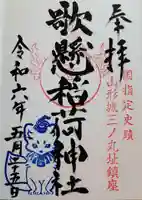 奉拝
国指定史蹟
山形城三ノ丸址鎮座
歌懸稲荷神社
令和六年五月三十五日